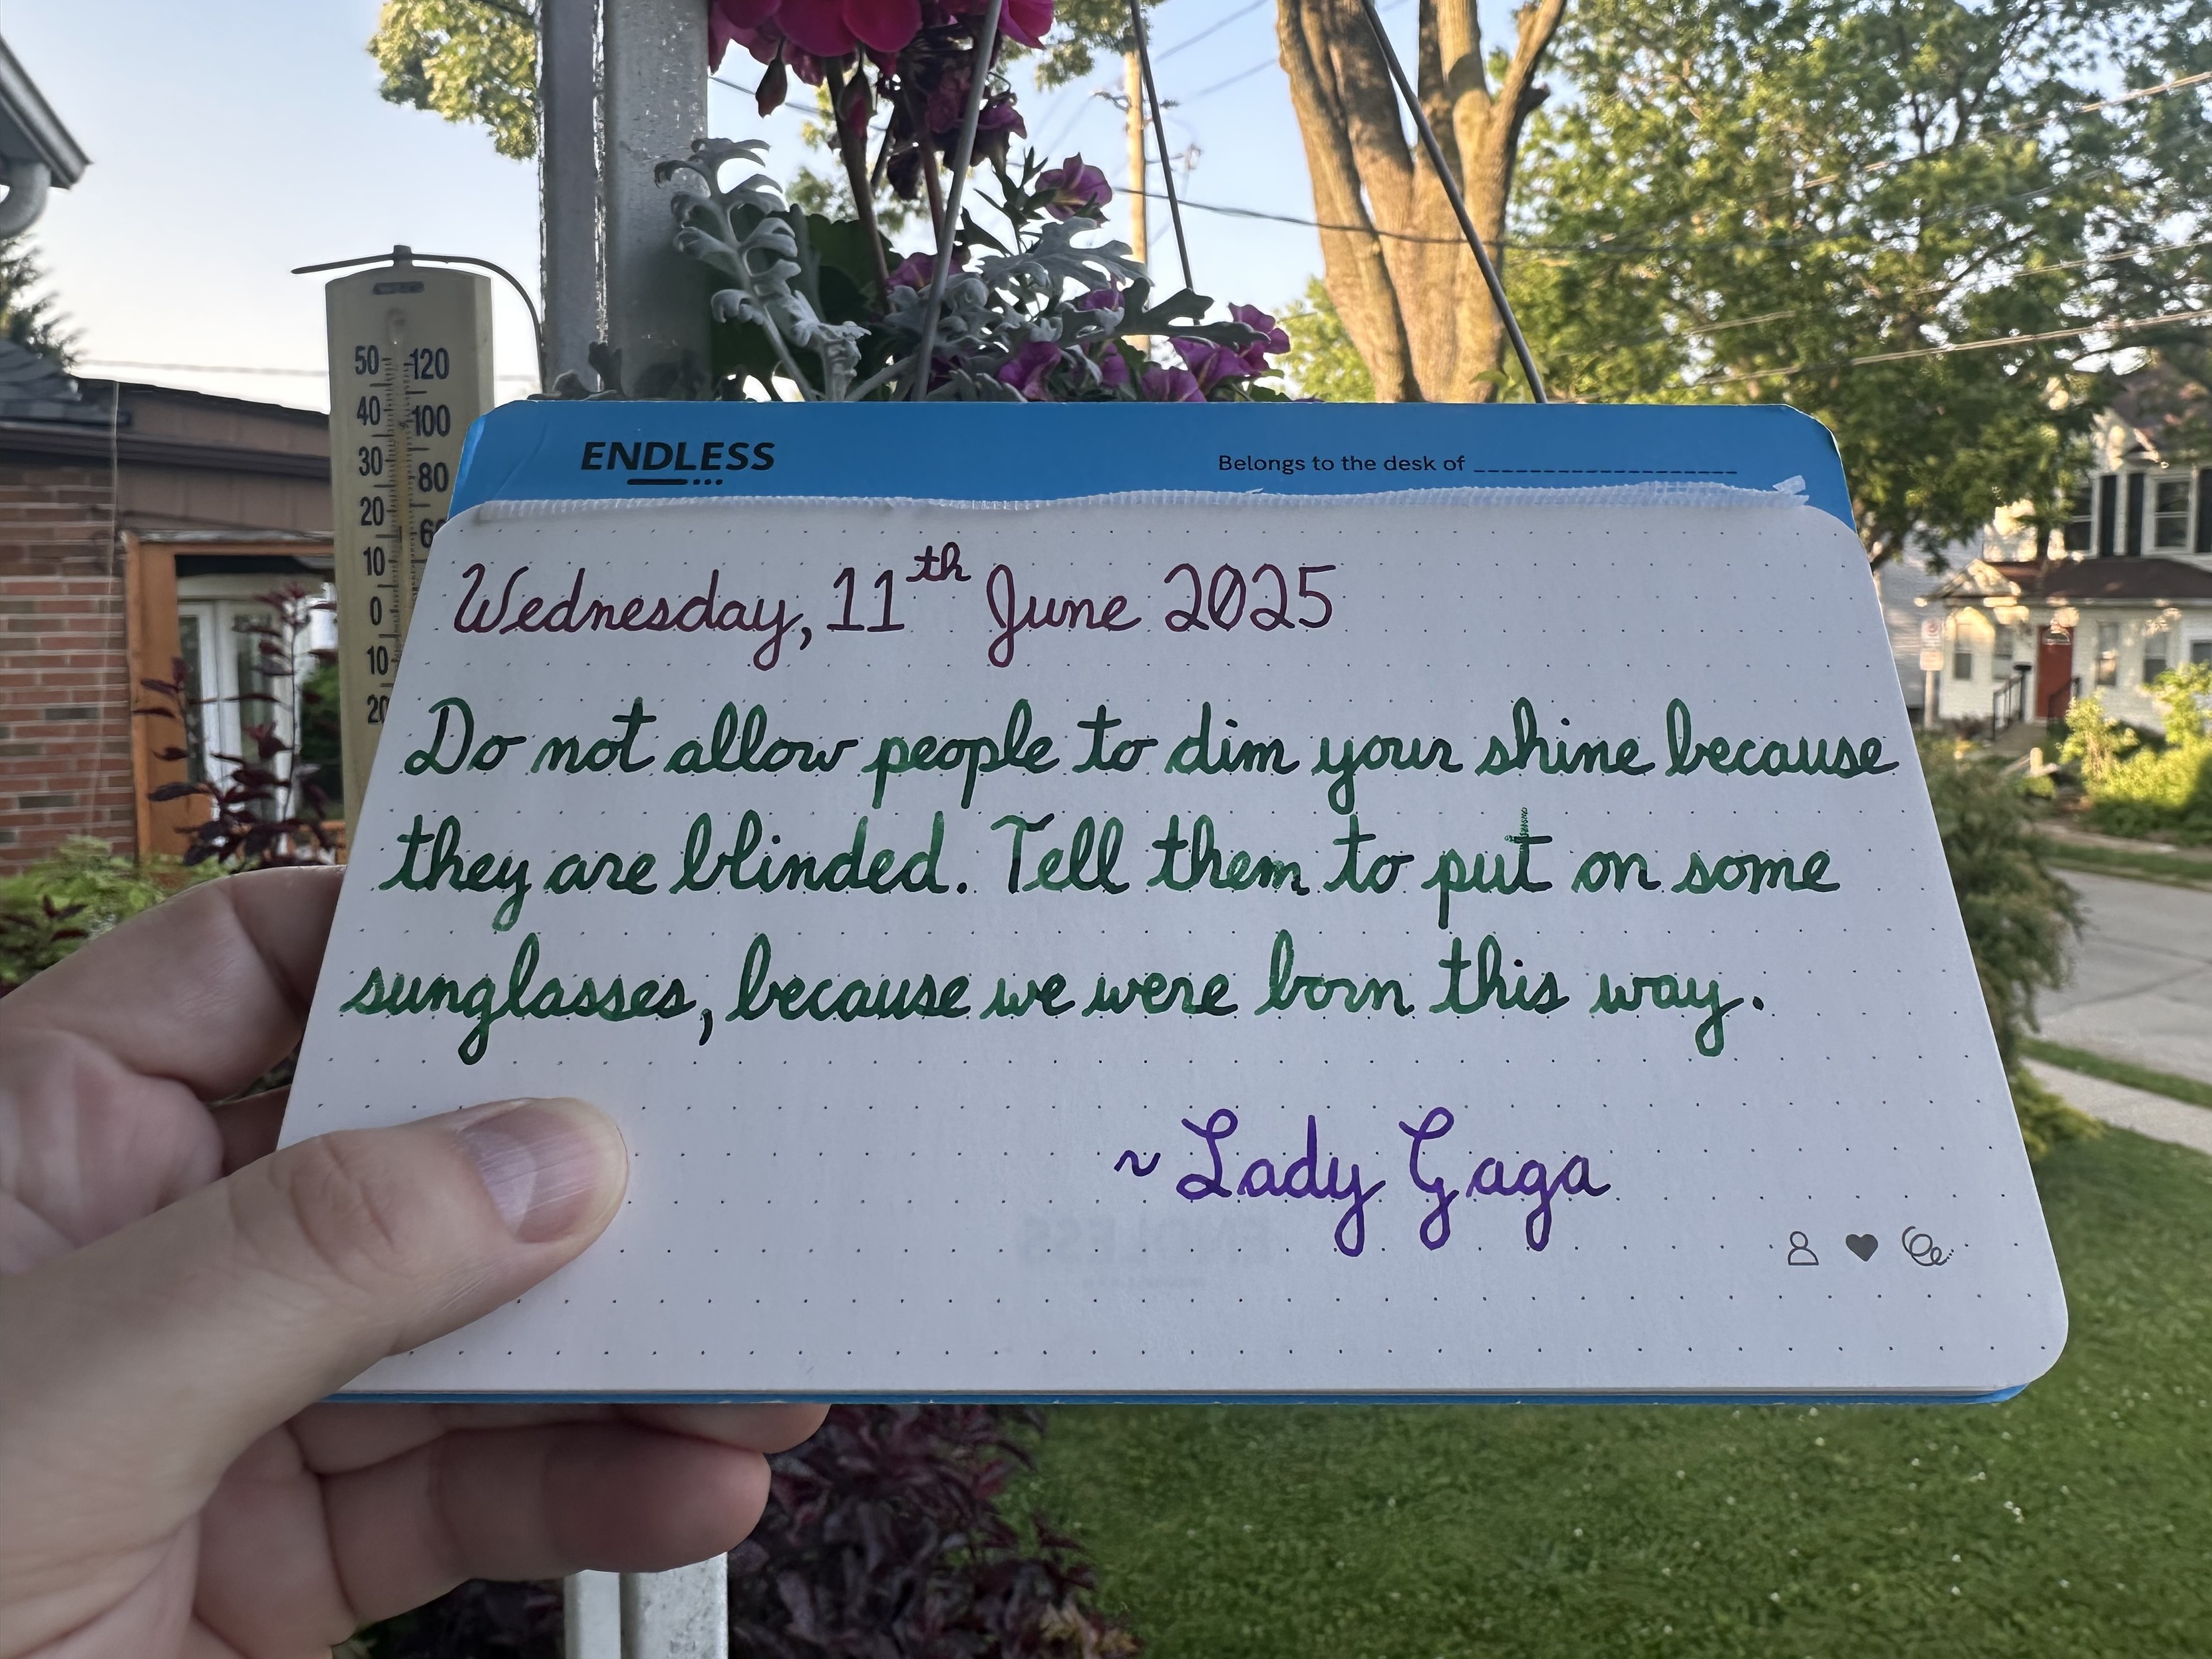 50 120
40 100
30 80
20 60
10
0
10
20
ENDLESS
Belongs to the desk of
Wednesday, 11th June 2025
Do not allow people to dim your shine because
they are blinded. Tell them to put on some
sunglasses, because we were born this way.
~Lady Gaga